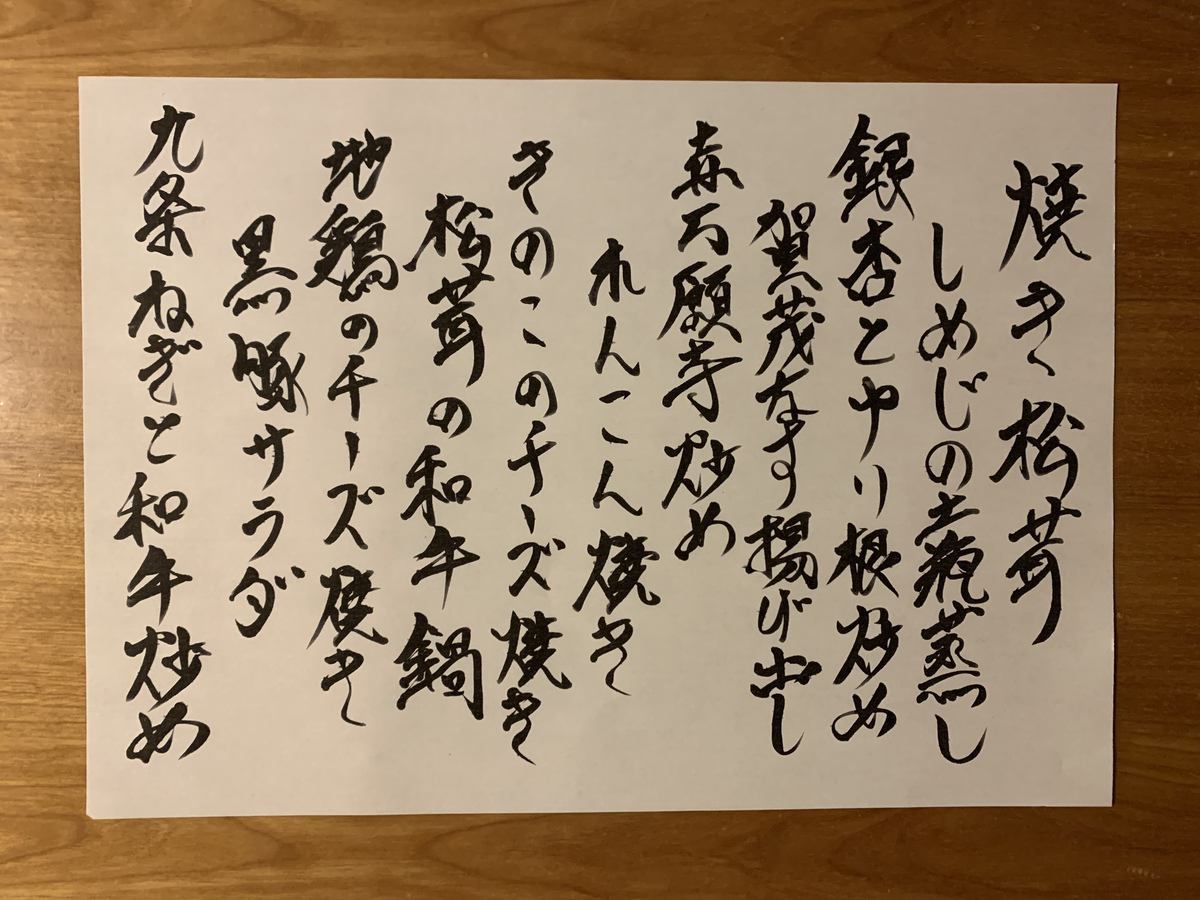 焼き松茸
しめじの土瓶蒸し
銀杏とユリ根炒め
賀茂なす揚げ出し
赤万願寺炒め
れんこん焼き
きのこのチーズ焼き
松茸の和牛鍋
地鶏のチーズ焼き
黒豚サラダ
九条ねぎと和牛炒め